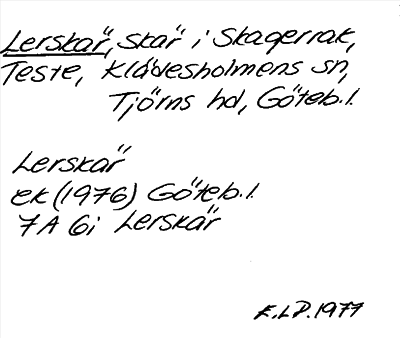 Lerskär, skär i Skagerrak,
Teste, Klädesholmens sn,
Tjörns hd, Göteb.l.
Lerskär
ek (1976) Göteb.l.
7A 6i Lerskär
E.LP.1977